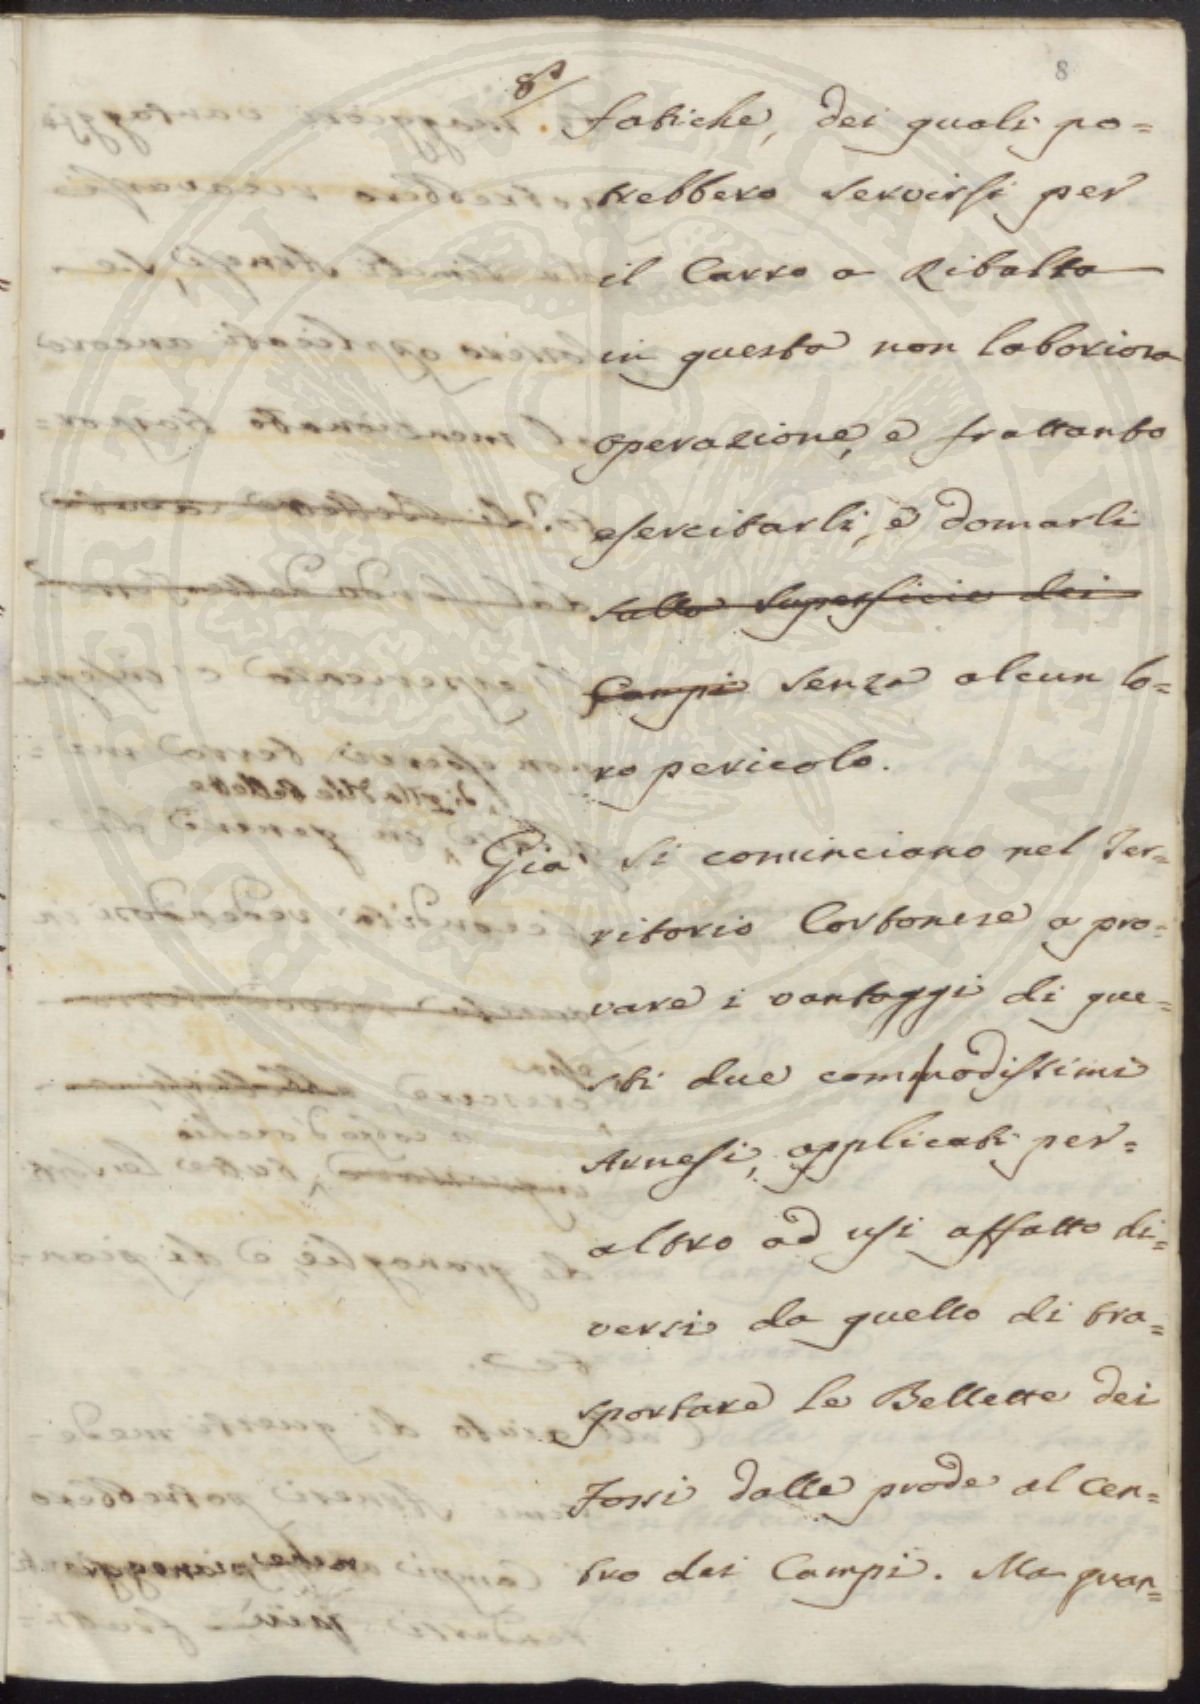 8
fatiche, dei quali po=
trebbero servirsi per
il Carro a Ribalta
in questa non laboriosa
operazione, e frattanto
esercitarli, e domarli
sulla superficie dei
Campi senza alcun lo=
ro pericolo.
Gia' si cominciano nel Ter=
ritorio Cortonese a pro=
vare i vantaggi di que=
sti due commodissimi
Arnesi, applicati per=
altro ad usi affatto di=
versi da quello di tra=
sportare le Bellette dei
Fossi dalle prode al cen=
tro dei Campi. Ma quan=